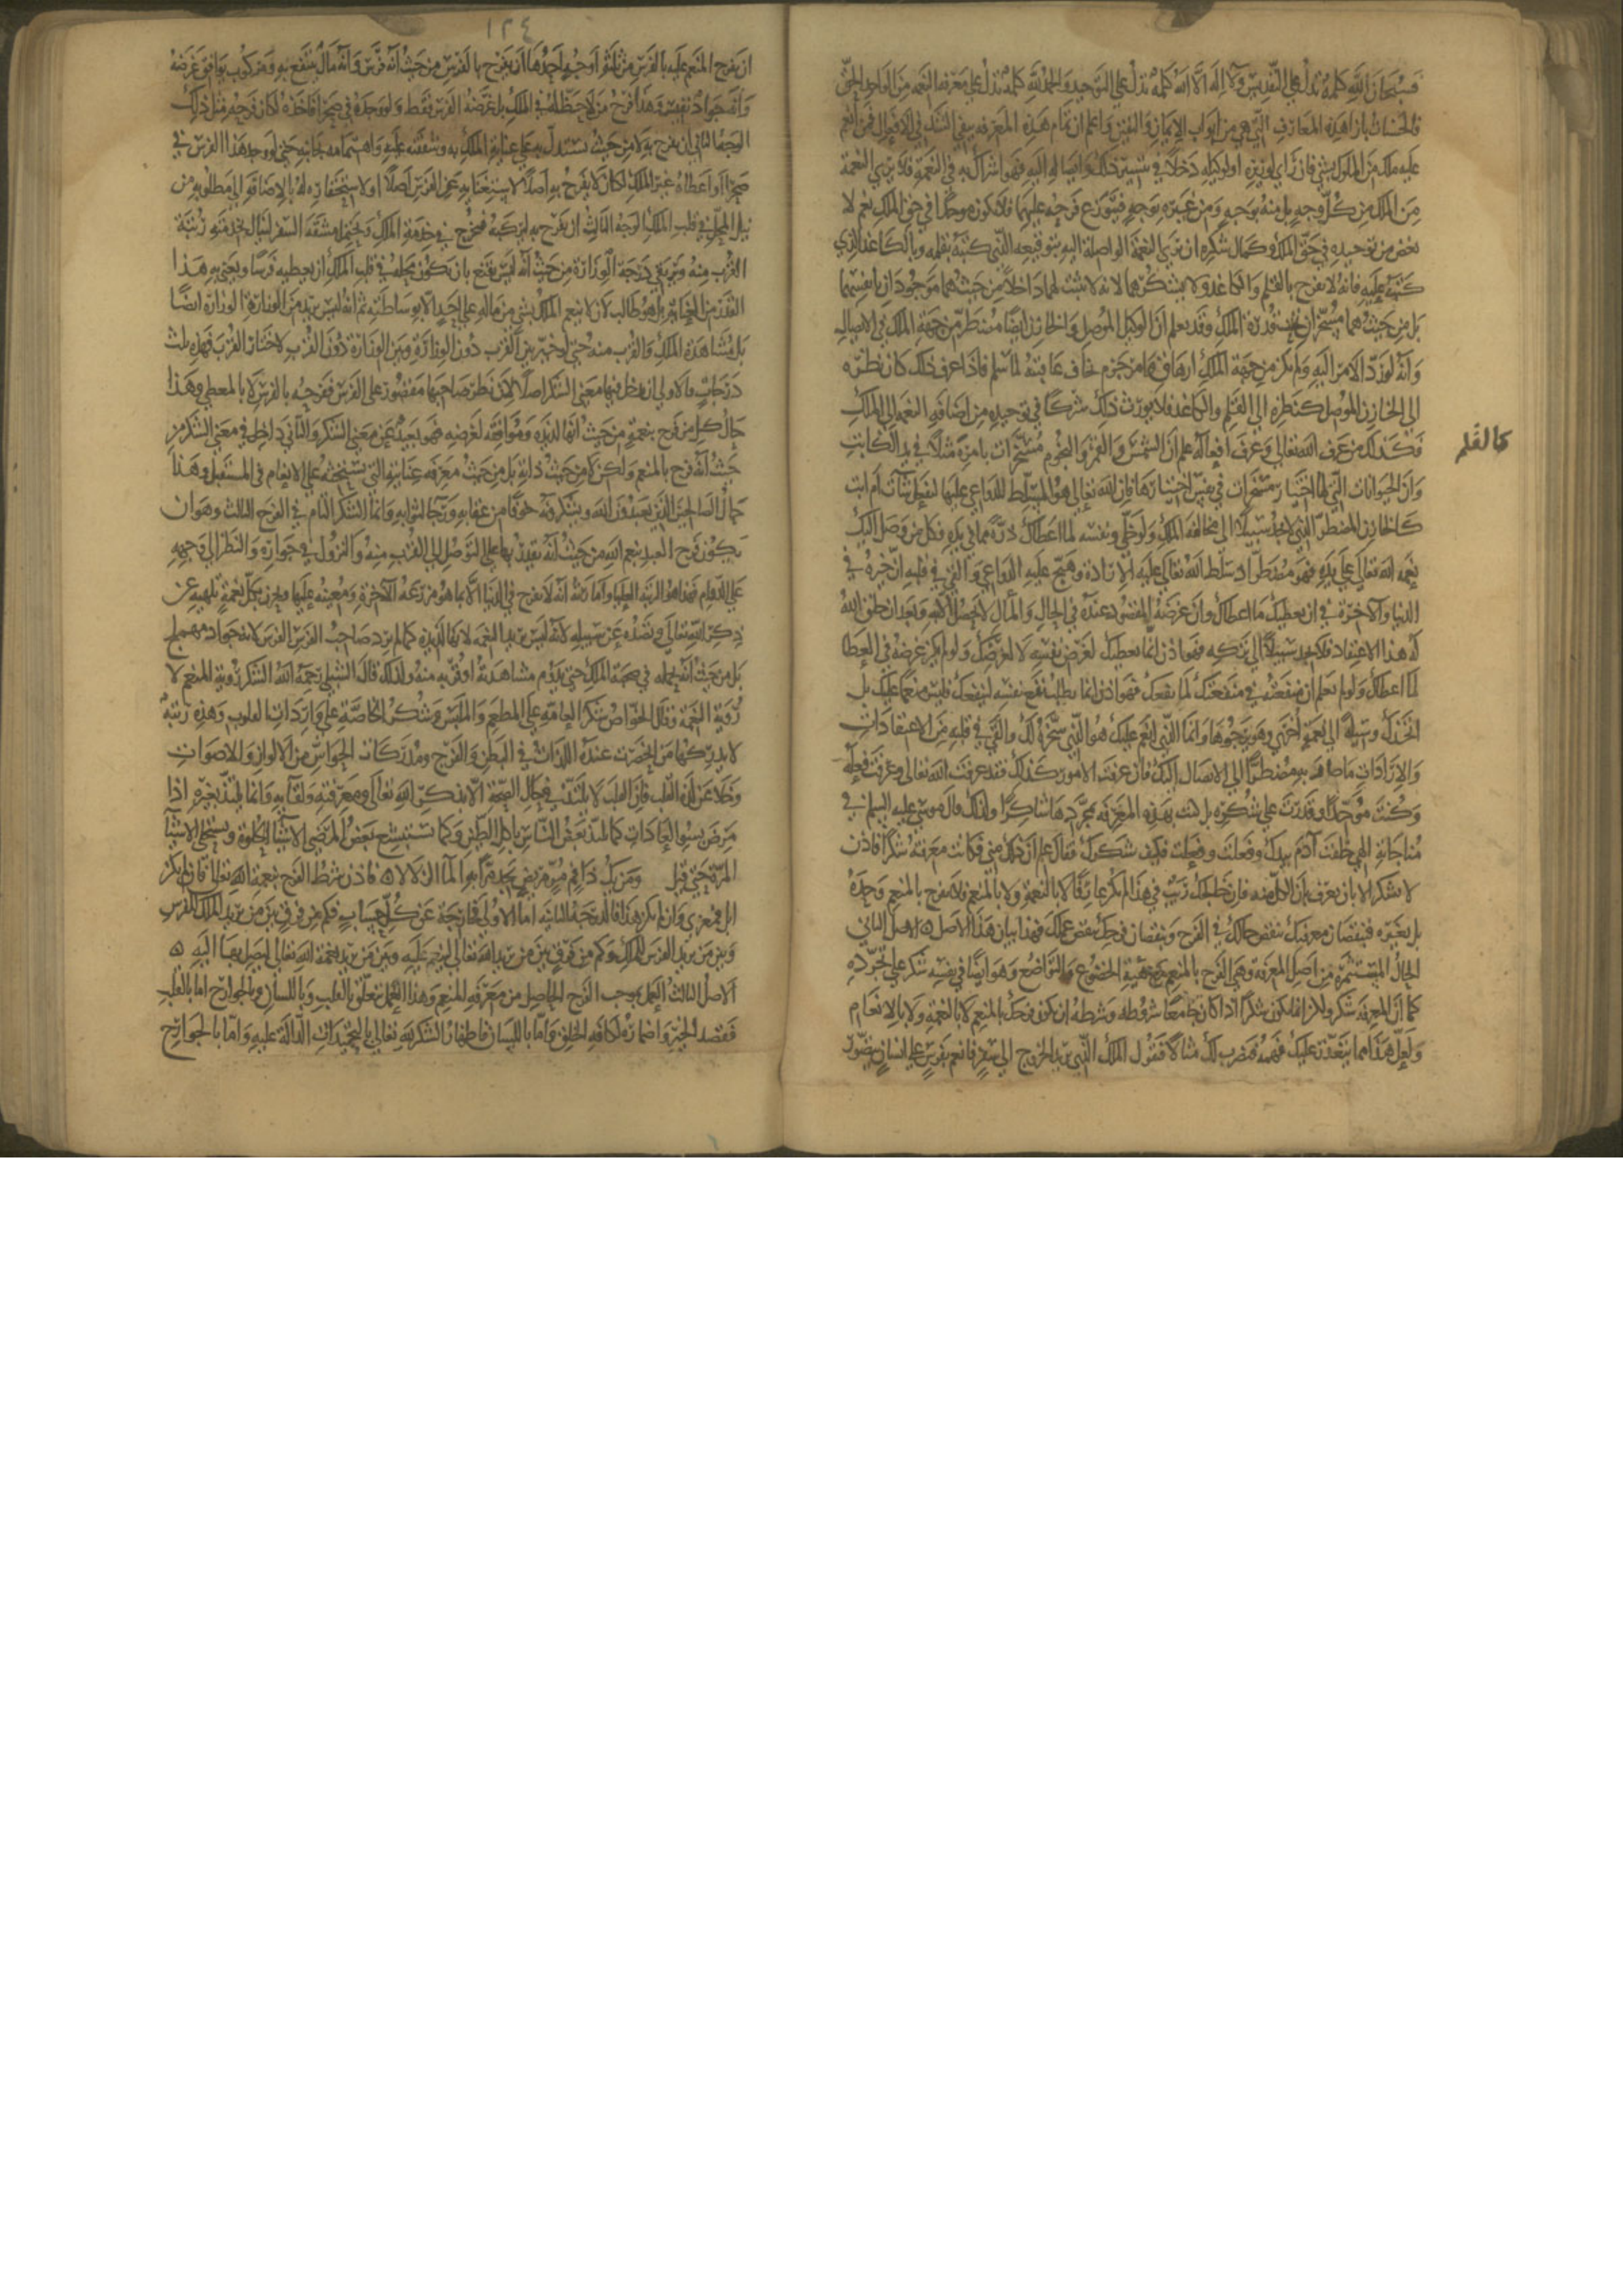 فسبحان الله كلمة تدل على التقديس ولا اله الا الله كلمة تدل على التوحيد والحمد لله كلمة تدل على معرفة النعمة من الواحد الحق
فالحسنات بازا هذه المعارف التي هي من ابواب الايمان واليقين واعلم ان تمام هذه المعرفة ينفي الشرك في الافعال فمن انعم
عليه ملك من الملوك بشي فان راي لوزيره او لوكيله دخلا في تيسير ذلك وايصاله اليه فهو اشراك به في النعمة فلا يري النعمة
من الملك من كل وجه بل منه بوجه ومن غيره بوجه فيتوزع فرحه عليهما فلا يكون موحدا في حق الملك نعم لا
يغض من توحيده في حق الملك وكمال شكره ان يري النعمة الواصلة اليه بتوقيعه الذي كتبه بقلمه وبالكاغد الذي
كتبه عليه فانه لا يفرح بالقلم والكاغد ولا يشكرهما لانه لا يثبت لهما دخلا من حيث هما موجودان بانفسهما
بل من حيث هما مسخران تحت قدرة الملك وقد يعلم ان الوكيل الموصل والخازن ايضا مضطر من جهة الملك في الايصال
وانه لو رد الامر اليه ولم يكن من جهة الملك ارهاق وامر جزم يخاف عاقبته لما سلم فاذا عرف ذلك كان نظره
الي الخازن الموصل كنظره الي القلم والكاغد فلا يورث ذلك شركا في توحيده من اضافة النعمة الي الملك
فكذلك من عرف الله تعالي وعرف افعاله علم ان الشمس والقمر والنجوم مسخرات بامره مثلا في يد الكاتب
كالقلم
وان الحيوانات التي لها اختيار مسخرات في نفس اختيارها فان الله تعالي هو المسلط للدواعي عليها لتفعل شات ام ابت
كالخازن المضطر الذي لا يجد سبيلا الي مخالفة الملك ولو خلي ونفسه لما اعطاك ذرة مما في يده فكل من وصل اليك
نعمة الله تعالي علي يده فهو مضطر اذ سلط الله تعالي عليه الارادة وهيج عليه الدواعي والقي في قلبه ان خيره في
الدنيا والاخرة في ان يعطيك ما اعطاك وان غرضه المقصود عنده في الحال والمال لا يحصل الا به وبعد ان خلق الله
له هذا الاعتقاد فلا يجد سبيلا الي تركه فهو اذن انما يعطيك لغرض نفسه لا لغرضك ولو لم يكن غرضه في العطا
لما اعطاك ولو لم يعلم ان منفعته في منفعتك لما نفعك فهو اذن انما يطلب نفع نفسه بنفعك فليس منعما عليك بل
اتخذك وسيلة الي نعمة اخري وهو يرجوها وانما الذي انعم عليك هو الذي سخره لك والقي في قلبه من الاعتقادات
والارادات ما صار به مضطرا الي الايصال اليك فان عرفت الامور كذلك فقد عرفت الله تعالي وعرفت فعله
وكنت موحدا وقدرت علي شكره بل كنت بهذه المعرفة بمجردها شاكرا ولذلك قال موسي عليه السلم في
مناجاته الهي خلقت ادم بيدك وفعلت وفعلت فكيف شكرك فقال علم ان ذلك مني فكانت معرفته شكرا فاذن
لا شكر الا بان يعرف بان الكل منه فان خالجك ريب في هذا لم تكن عارفا لا بالنعمة ولا بالمنعم فلا تفرح بالمنعم وحده
بل بغيره فبنقصان معرفتك ينقص حالك في الفرح وبنقصان فرحك ينقص عملك فهذا بيان هذا الاصل ه الاصل الثاني
الحال المستثمرة من اصل المعرفة وهي الفرح بالمنعم مع هيية الخضوع والتواضع وهو ايضا في نفسه شكر علي تجرده
كما ان المعرفة شكر ولكن انما يكون شكرا اذا كان جامعا شروطه وشرطه ان يكون فرحك بالمنعم لا بالنعمة ولا بالانعام
ولعل هذا مما يتعذر عليك فهمه فنضرب لك مثالا فنقول الملك الذي يريد الخروج الي سفر فانعم بفرس علي انسان يتصور
١٢٤
ان يفرح المنعم عليه بالفرس من ثلثة اوجه احدها ان يفرح بالفرس من حيث انه فرس وانه مال ينتفع به ومركوب يوافق غرضه
وانه جواد نفيس وهذا فرح من لا حظ له في الملك بل غرضه الفرس فقط ولو وجده في صحرا فاخذه لكان فرحه مثل ذلك
الوجه الثاني ان يفرح به لا من حيث يستدل به علي عناية الملك به وشفقته عليه واهتمامه بجانبه حتي لو وجد هذا الفرس في
صحرا او اعطاه غير الملك لكان لا يفرح به اصلا لاستغنايه عن الفرس اصلا او لاستحقاره له بالاضافة الي مطلوبه من
نيل المحل في قلب الملك الوجه الثالث ان يفرح به ليركبه فيخرج في خدمة الملك ويتحمل مشقة السفر لينال بخدمته رتبة
القرب منه ويرتقي درجة الوزارة من حيث انه ليس يقنع بان يكون محله في قلب الملك ان يعطيه فرسا ويعتني به هذا
القدر من العناية بل هو طالب لان لا ينعم الملك بشي من ماله علي احد الا بوساطته ثم انه ليس يريد من الوزارة الوزارة ايضا
بل مشاهدة الملك والقرب منه حتي لو خير بين القرب دون الوزارة وبين الوزارة دون القرب لاختار القرب فهذه ثلث
درجات فالاولي لا يدخل فيها معني الشكر اصلا لان نظر صاحبها مقصور علي الفرس ففرحه بالفرس لا بالمعطي وهذا
حال كل من فرح بنعمة من حيث انها لذيذة وموافقة لغرضه فهو بعيد عن معني الشكر والثاني داخل في معني الشكر من
حيث انه فرح بالمنعم ولكن لا من حيث ذاته بل من حيث معرفة عنايته التي تستحثه علي الانعام في المستقبل وهذا
حال الصالحين الذين يعبدون الله ويشكرونه خوفا من عقابه ورجا لثوابه وانما الشكر التام في الفرح الثالث وهو ان
يكون فرح العبد بنعم الله من حيث انه يقدر بها علي التوصل الي القرب منه والنزول في جواره والنظر الي وجهه
علي الدوام فهذا هو الرتبة العليا وامارته انه لا يفرح في الدنيا الا بما هو مزرعة الاخرة ومعينه عليها ويحزن بكل نعمة تلهيه عن
ذكر الله تعالي وتصده عن سبيله لانه ليس يريد النعمة لانها لذيذة كما لم يرد صاحب الفرس الفرس لانه جواد مهملج
بل من حيث انه يحمله في صحبة الملك حتي يدوم مشاهدته وقربه منه ولذلك قال الشبلي رحمه الله الشكر رؤية المنعم لا
رؤية النعمة وقال الخواص شكر العامة علي المطعم والملبس وشكر الخاصة علي واردات القلوب وهذه رتبة
لا يدركها من انحصرت عنده اللذات في البطن والفرج ومدركات الحواس من الالوان والاصوات
وخلا عن لذة القلب فان القلب لا يلتذ في حال الصحة الا بذكر الله تعالي ومعرفته ولقايه وانما يلتذ بغيره اذا
مرض بسوء العادات كما يلتذ بعض الناس باكل الطين وكما يستبشع بعض المرضي الاشيا الحلوة ويستحلي الاشيا
المرة حتي قيل ومن يك ذا فم مر مريض يجد مرا به الما الزلالا ه فاذن شرط الفرح بنعمة الله تعالي فان لم يكن
ابل فمعزي وان لم يكن هذا فالدرجة الثانية اما الاولي فخارجة عن كل حساب فكم من فرق بين من يريد الملك للفرس
وبين من يريد الفرس للملك وكم من فرق بين من يريد الله تعالي لينعم عليه وبين من يريد نعمة الله تعالي ليصل بها اليه ه
الاصل الثالث العمل بموجب الفرح الحاصل من معرفة المنعم وهذا العمل يتعلق بالقلب وباللسان وبالجوارح اما بالقلب
فقصد الخير واضماره لكافة الخلق واما باللسان فاظهار الشكر لله تعالي بالتحميدات الدالة عليه واما بالجوارح